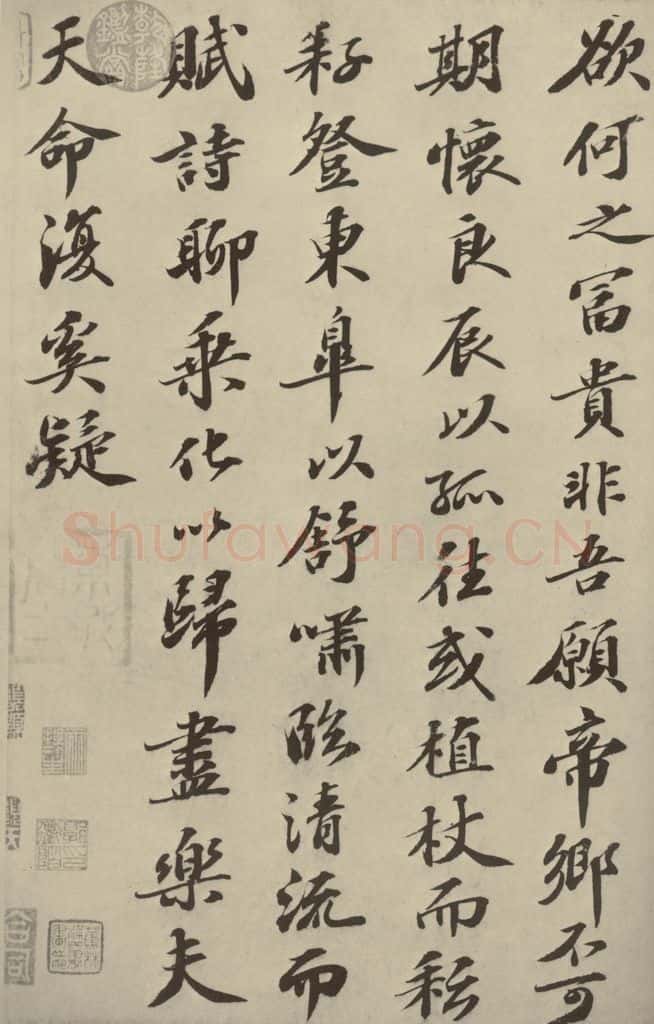 欲何之富貴非吾願帝鄉不可
期懷良辰以孤往或植杖而耘
耔登東皐以舒嘯臨清流而
賦詩聊乘化以歸盡樂夫
天命復奚疑
Shufawang.CN